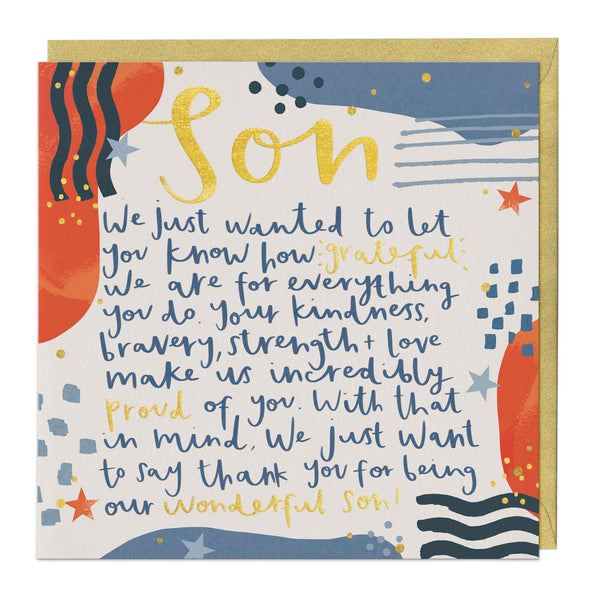 Son
We just wanted to let
you know how grateful
we are for everything
you do. Your kindness,
bravery, strength + love
make us incredibly
proud of you. With that
in mind, we just want
to say thank you for being
our wonderful son!